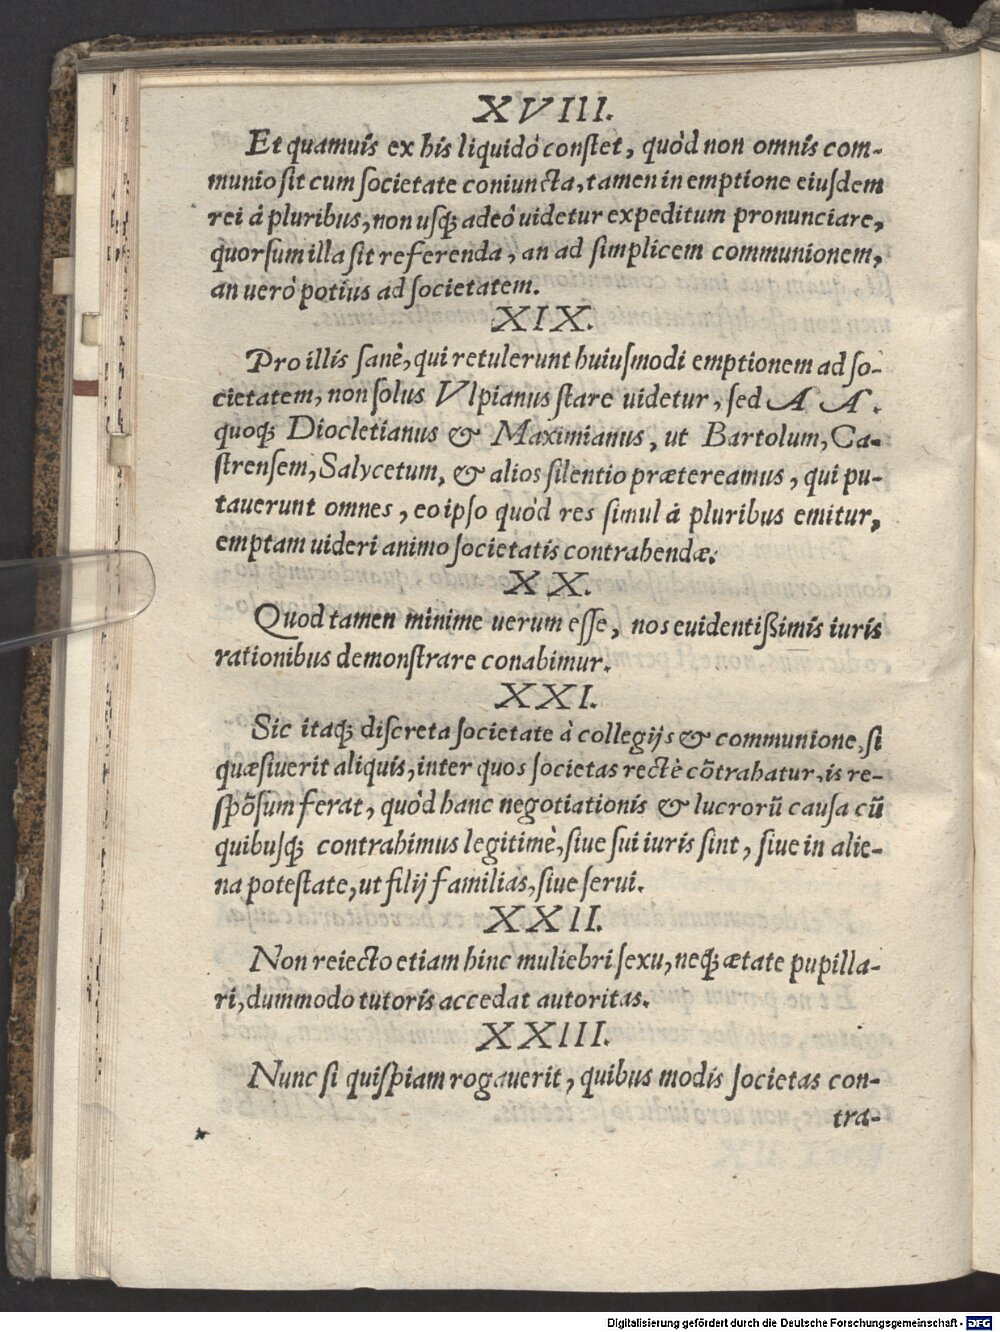 XVIII.
Et quamuis ex his liquidò constet, quòd non omnis com-
munio sit cum societate coniuncta, tamen in emptione eiusdem
rei à pluribus, non usq; adeò uidetur expeditum pronunciare,
quorsum illa sit referenda, an ad simplicem communionem,
an uerò potius ad societatem.
XIX.
Pro illis sanè, qui retulerunt huiusmodi emptionem ad so-
cietatem, non solus Vlpianus stare uidetur, sed A A.
quoq; Diocletianus & Maximianus, ut Bartolum, Ca-
strensem, Salycetum, & alios silentio prætereamus, qui pu-
tauerunt omnes, eo ipso quòd res simul à pluribus emitur,
emptam uideri animo societatis contrahendæ.
XX.
Quod tamen minime uerum esse, nos euidentißimis iuris
rationibus demonstrare conabimur.
XXI.
Sic itaq; discreta societate à collegijs & communione, si
quæsiuerit aliquis, inter quos societas rectè cõtrahatur, is re-
spõsum ferat, quòd hanc negotiationis & lucrorũ causa cũ
quibusq; contrahimus legitimè, siue sui iuris sint, siue in alie-
na potestate, ut filij familias, siue serui.
XXII.
Non reiecto etiam hinc muliebri sexu, neq; ætate pupilla-
ri, dummodo tutoris accedat autoritas.
XXIII.
Nunc si quispiam rogauerit, quibus modis societas con-
tra-
Digitalisierung gefördert durch die Deutsche Forschungsgemeinschaft - DFG